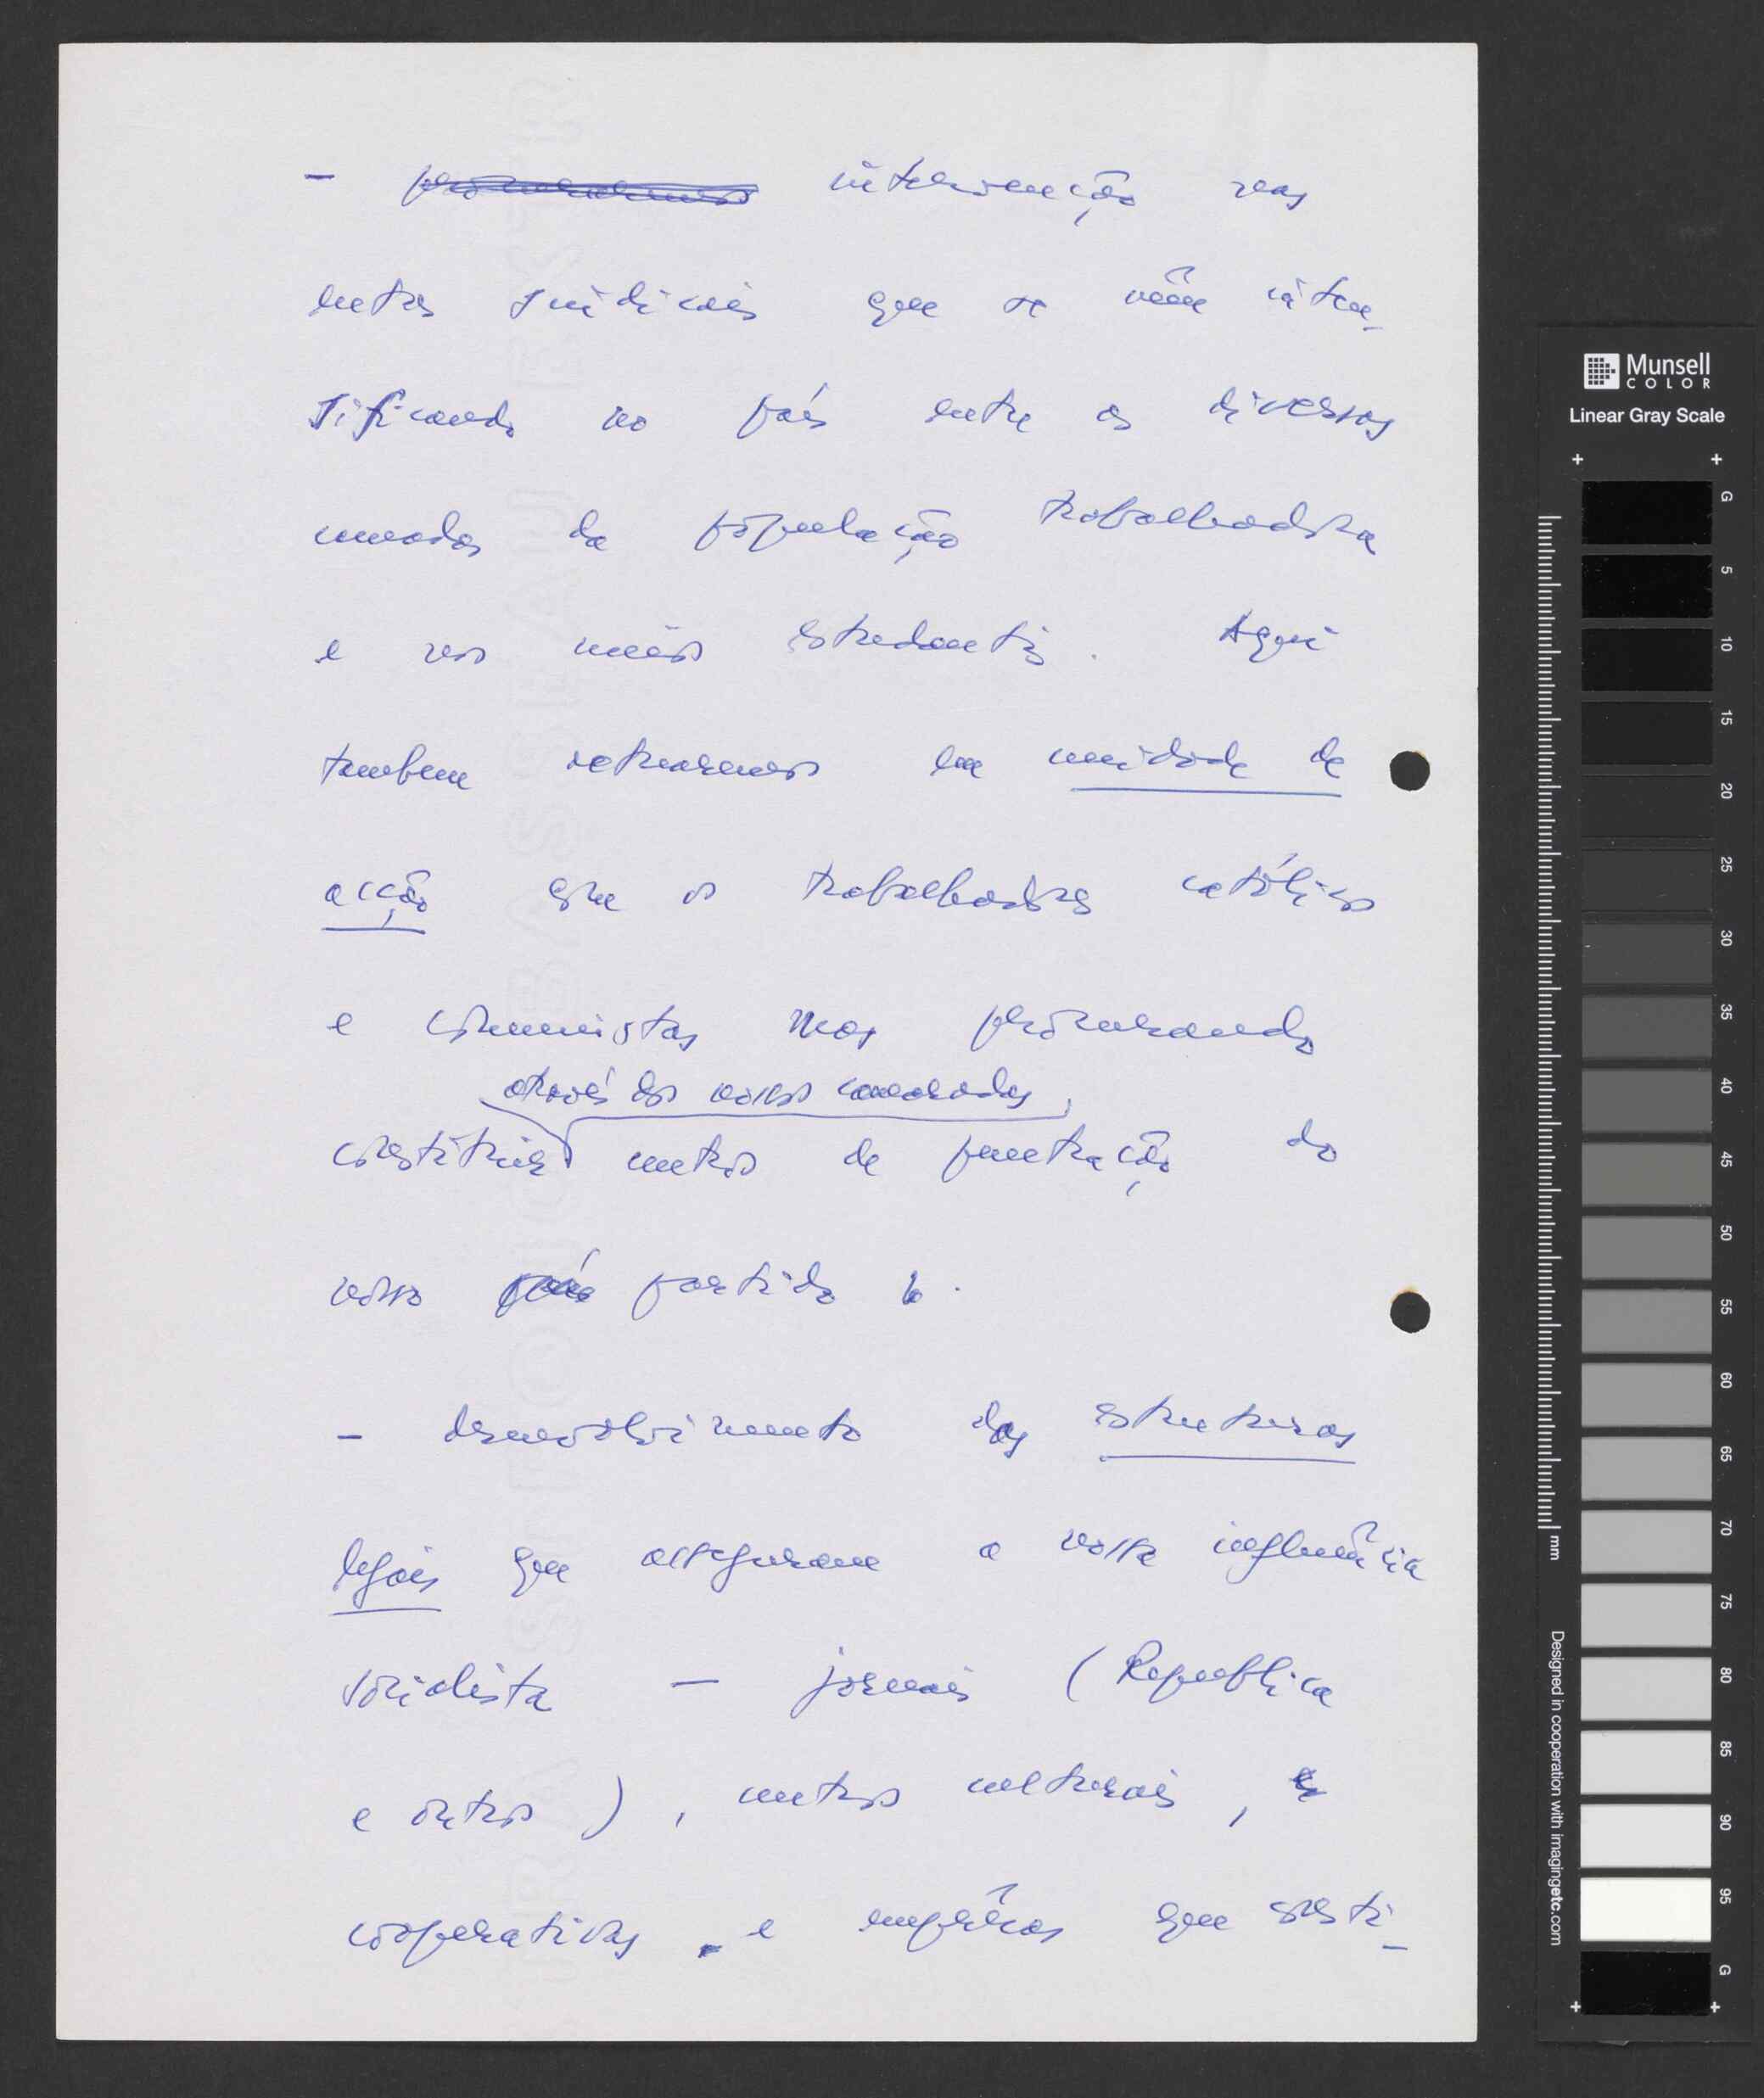 - procuraremos intervenção nas
lutas sindicais que se vêm inten-
sificando no país entre as diversas
camadas da população trabalhadora
e nos meios estudantis. Aqui
tambem actuaremos em unidade de
acção com os trabalhadores católicos
e comunistas mas procurando
através dos nossos camaradas,
constituir centros de penetração do
nosso país partido.
- desenvolvimento das estruturas
legais que asseguram a nossa influência
socialista — jornais (Republica
e outros), centros culturais, e
cooperativas e emprêsas que consti-
Munsell
COLOR
Linear Gray Scale
G
5
10
15
20
25
30
35
40
45
50
55
60
65
70
75
80
85
90
95
G
mm
Designed in cooperation with imagingetc.com